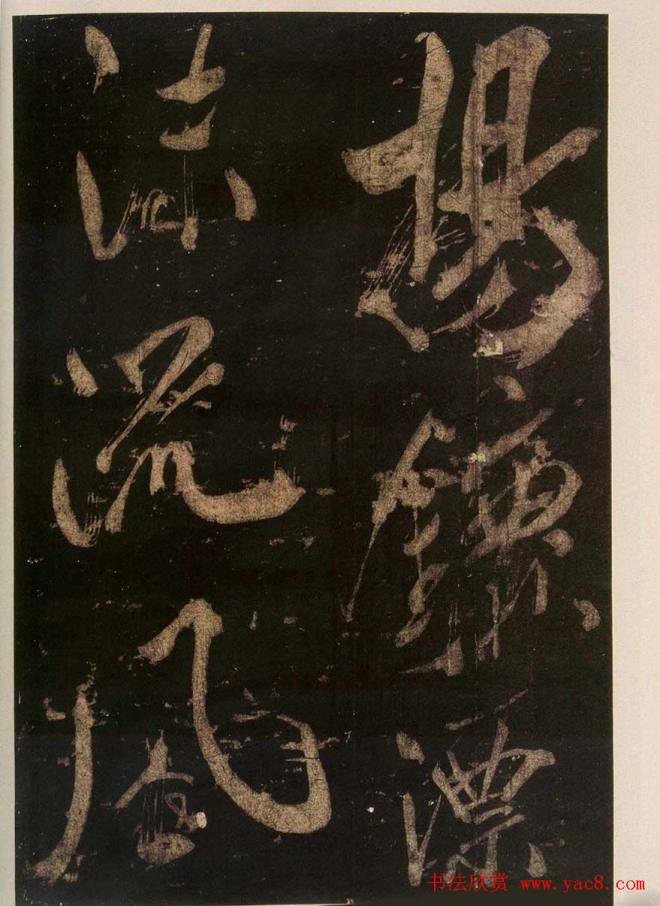 揚鑣漂
沫流風
书法欣赏 www.yac8.com